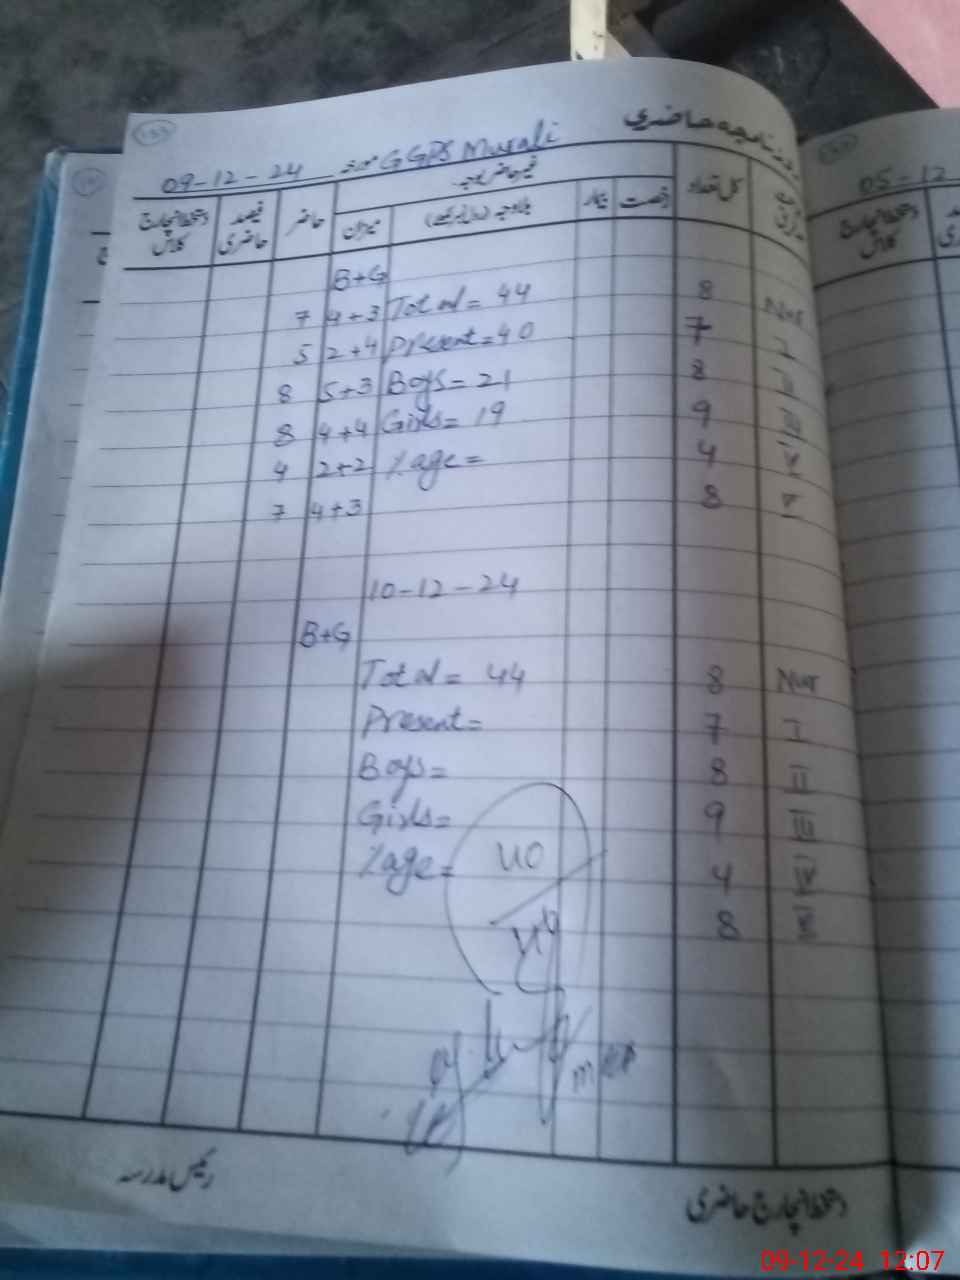 133
روزنامچہ حاضری
09-12-24 مورخہ GGPS Murali
غیر حاضر بوجہ
کل تعداد رخصت بیمار بلاوجہ میزان حاضر فیصد حاضری دستخط انچارج کلاس
B+G
Nur 8 Total = 44 4+3 7
I 7 Present = 40 2+4 5
II 8 Boys = 21 5+3 8
III 9 Girls = 19 4+4 8
4 %age = 2+2 4
V 8 4+3 7
10-12-24
B+G
Nur 8 Total = 44
I 7 Present =
II 8 Boys =
III 9 Girls =
IV 4 %age =
8
40
رئیس مدرسہ
دستخط انچارج حاضری
05-12
دستخط انچارج کلاس
09-12-24 12:07